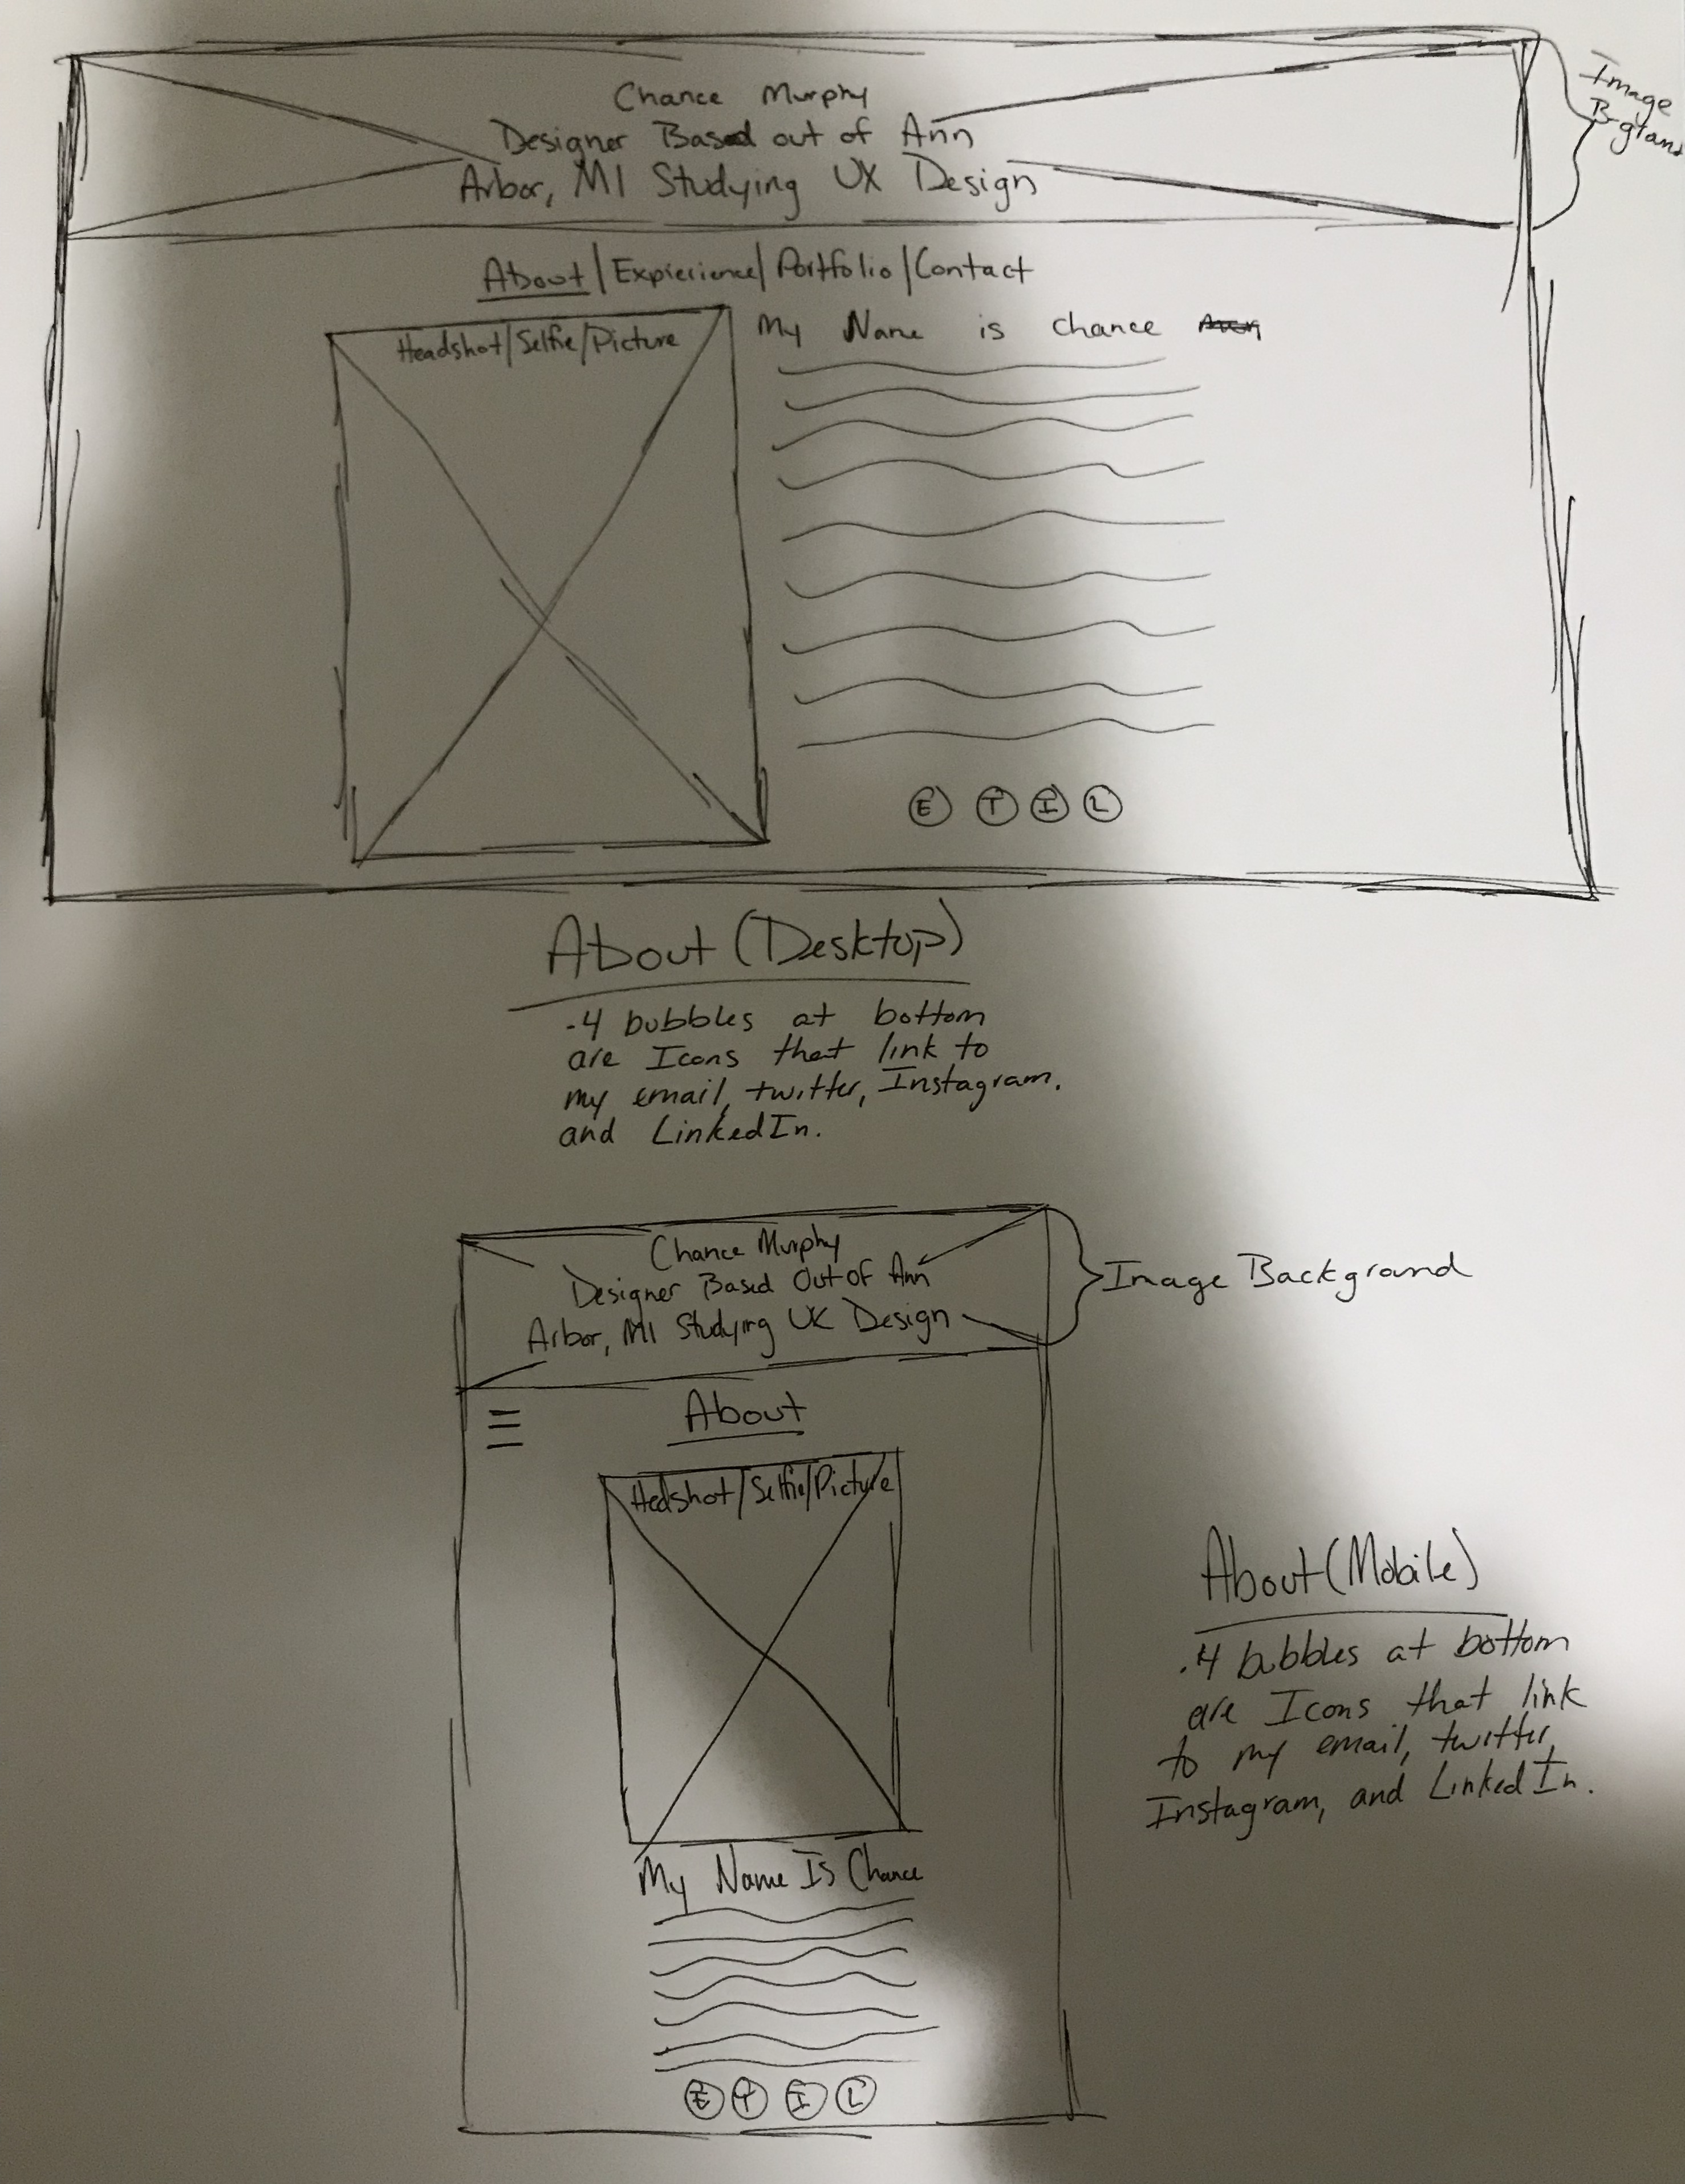 Chance Murphy
Designer Based out of Ann
Arbor, MI Studying UX Design
Image
About/Expierience/Portfolio/Contact
Headshot/Selfie/Picture
My Name is Chance
E T I L
About (Desktop)
-4 bubbles at bottom
are Icons that link to
my email, twitter, Instagram.
and LinkedIn.
Chance Murphy
Designer Based Out of Ann
Arbor, MI Studying UX Design
Image Background
About
Hedshot/Selfie/Picture
My Name Is Chance
E T I L
About (Mobile)
.4 bubbles at bottom
are Icons that link
to my email, twitter,
Instagram, and LinkedIn.